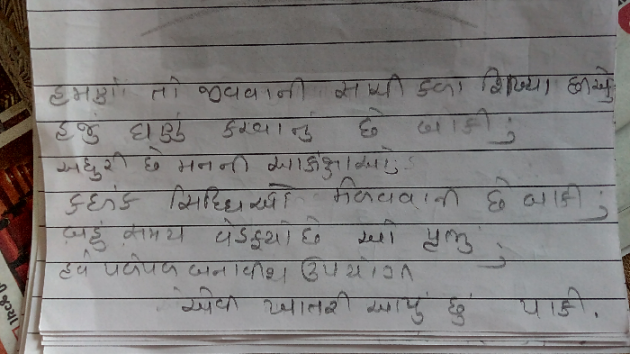 હમણાં તો જીવવાની સાચી કળા શિખ્યા છીએ
હજું ઘણું કરવાનું છે બાકી;
અધુરી છે મનની આકાંક્ષાઓ;
કઈંક સિધ્ધિઓ મેળવવાની છે બાકી;
બહું સમય વેડફ્યો છે ઓ પ્રભુ;
હવે પળેપળ બનાવીશ ઉપયોગી
એવી ખાતરી આપું છું પાકી.